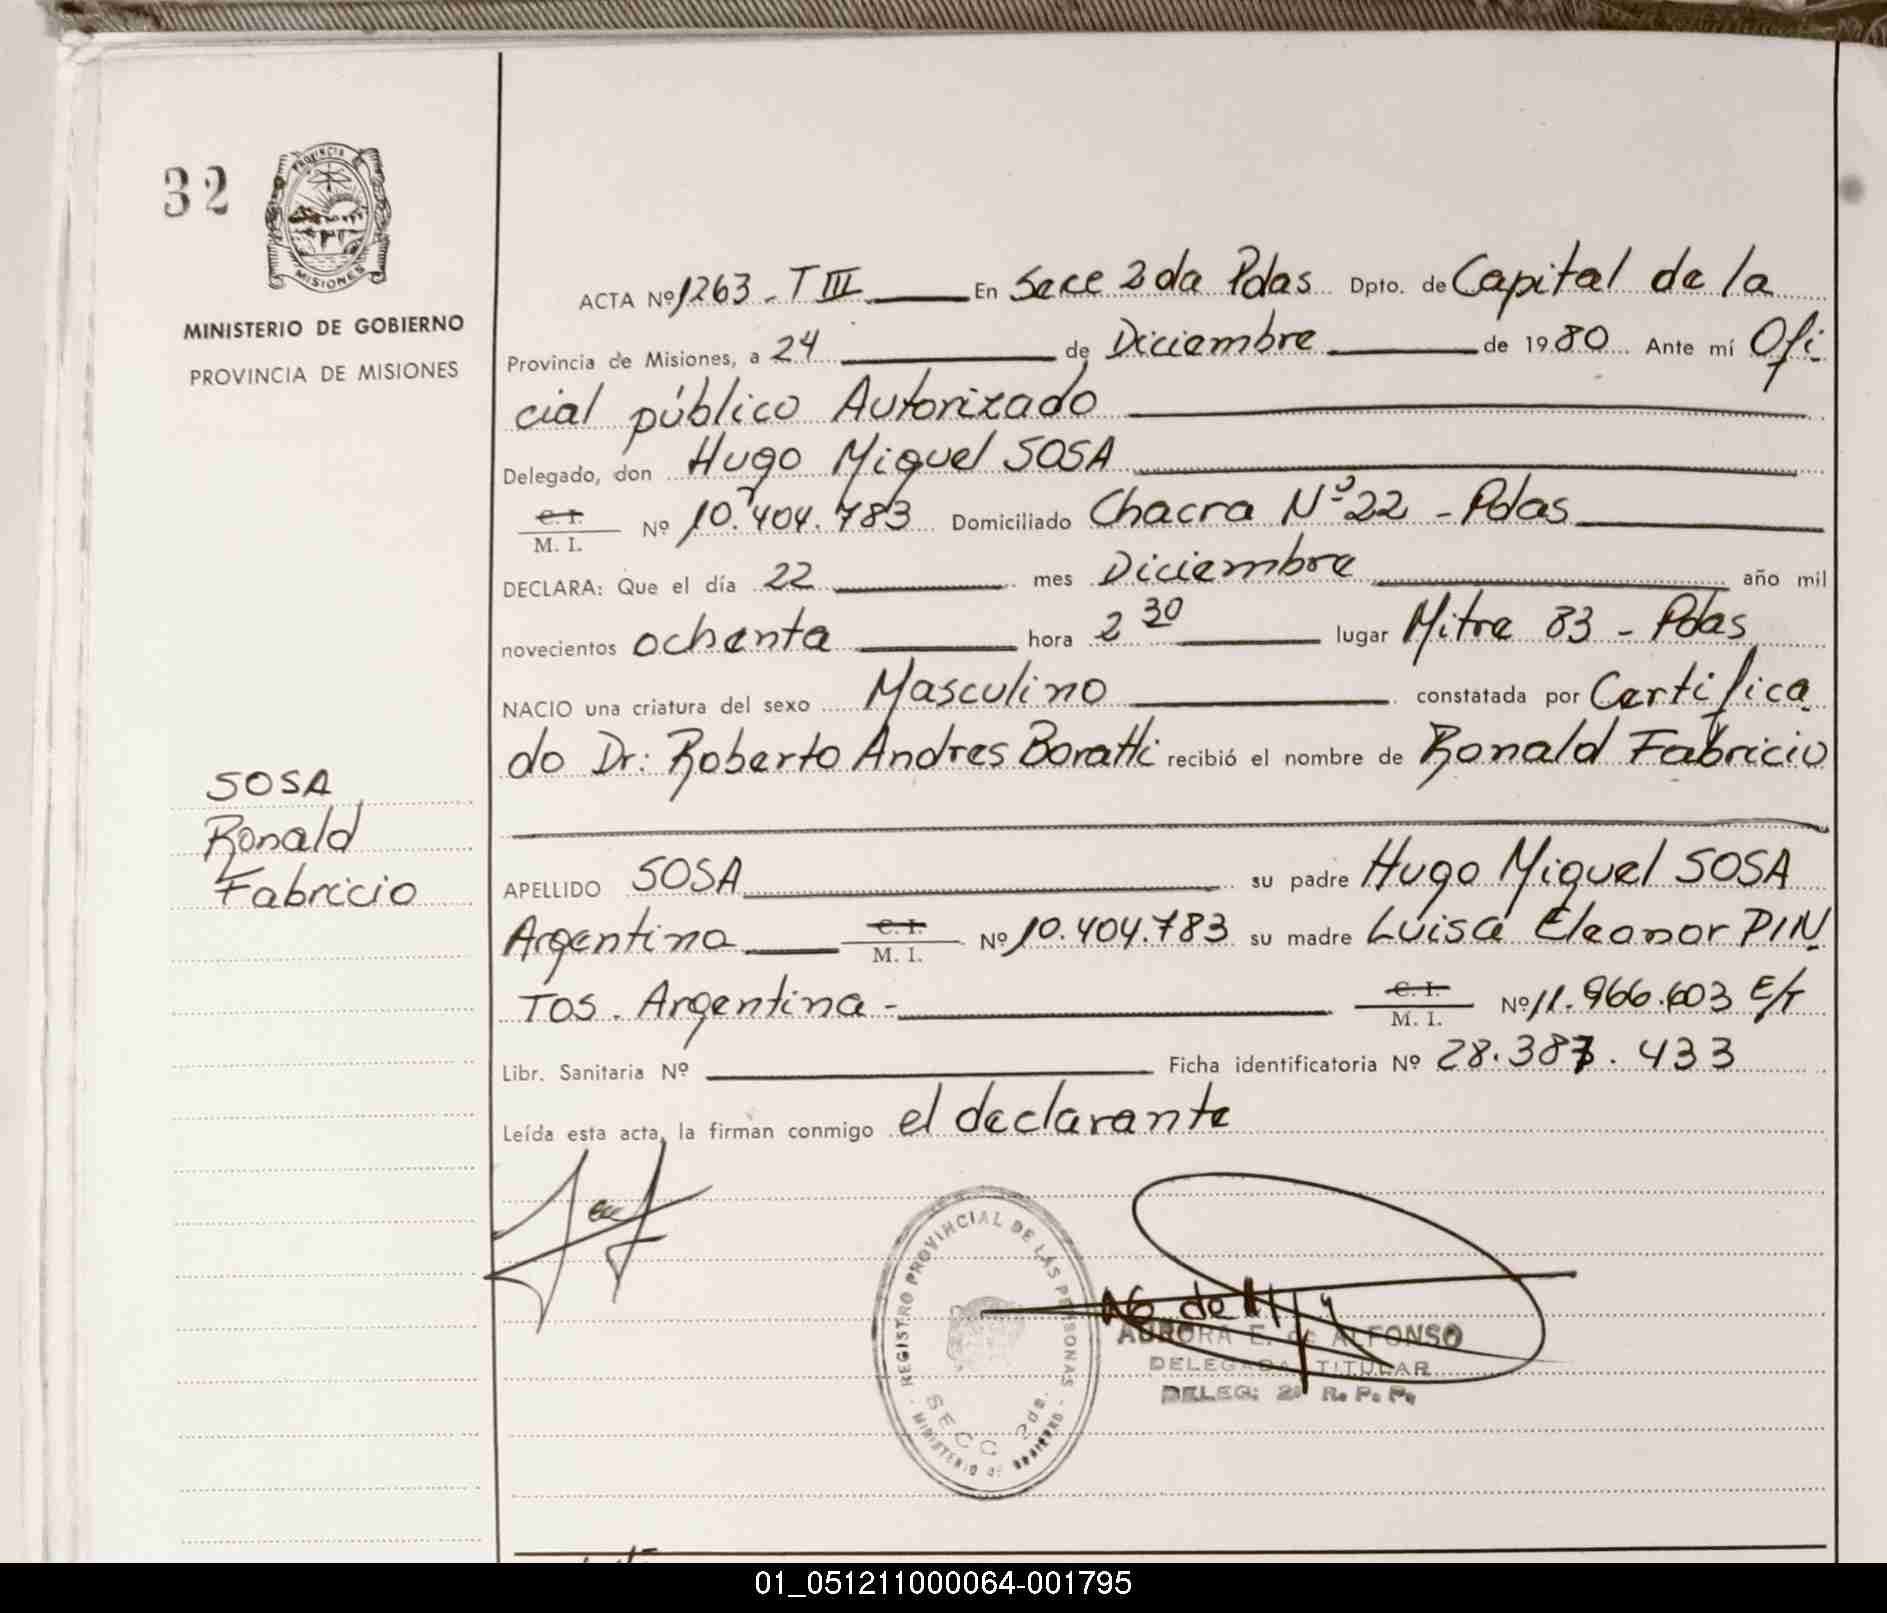 32
PROVINCIA
MISIONES
MINISTERIO DE GOBIERNO
PROVINCIA DE MISIONES
SOSA
Ronald
Fabricio
ACTA Nº 1263 - T III En Secc 2da Pdas Dpto. de Capital de la
Provincia de Misiones, a 24 de Diciembre de 1980 Ante mí Ofi
cial público Autorizado
Delegado, don Hugo Miguel SOSA
C. I.
M. I. Nº 10.404.783 Domiciliado Chacra Nº 22 - Pdas
DECLARA: Que el día 22 mes Diciembre año mil
novecientos ochenta hora 2 30 lugar Mitre 83 - Pdas
NACIO una criatura del sexo Masculino constatada por Certifica
do Dr: Roberto Andres Boratti recibió el nombre de Ronald Fabricio
APELLIDO SOSA su padre Hugo Miguel SOSA
Argentino C. I.
M. I. Nº 10.404.783 su madre Luisa Eleonor PIN
TOS. Argentina - C. I.
M. I. Nº 11.966.603 E/T
Libr. Sanitaria Nº Ficha identificatoria Nº 28.387.433
Leída esta acta, la firman conmigo el declarante
REGISTRO PROVINCIAL DE LAS PERSONAS
SECC 2da.
- MINISTERIO DE GOBIERNO -
AURORA E. de ALFONSO
DELEGADA TITULAR
DELEG: 2ª R. P. P.
01_051211000064-001795